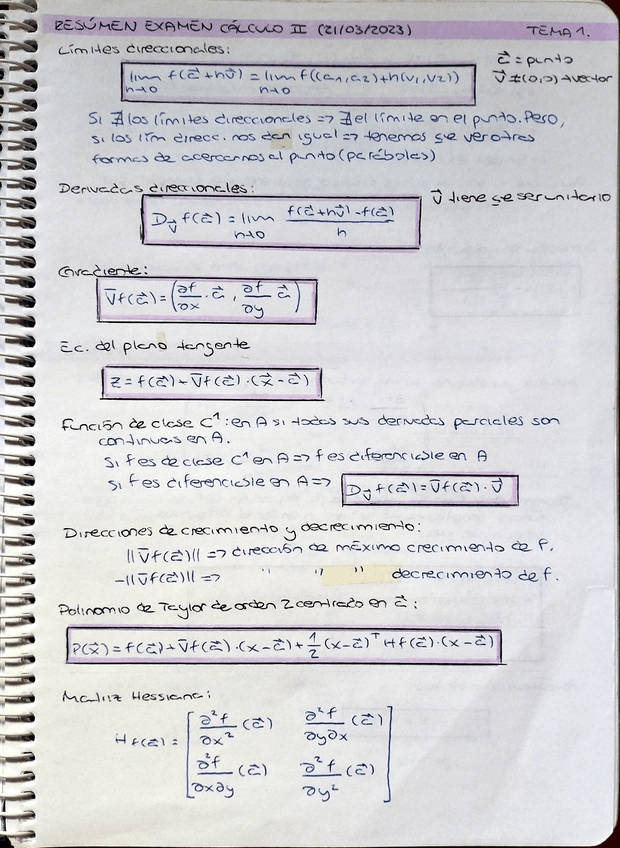 RESÚMEN EXAMEN CÁLCULO II (21/03/2023) TEMA 1.
Límites direccionales:
lim h→0 f(a⃗+hv⃗) = lim h→0 f((a₁,a₂)+h(v₁,v₂))
a⃗ = punto
v⃗ ≠(0,0)→vector
Si ∄ los límites direccionales => ∄ el límite en el punto. Pero,
si los lím direcc. nos dan igual => tenemos que ver otras
formas de acercarnos al punto (parábolas)
Derivadas direccionales:
v⃗ tiene que ser unitario
D_v⃗ f(a⃗) = lim h→0 (f(a⃗+hv⃗)-f(a⃗))/h
Gradiente:
∇f(a⃗) = (∂f/∂x · a⃗, ∂f/∂y a⃗)
Ec. del plano tangente
z = f(a⃗)+∇f(a⃗)·(x⃗-a⃗)
Función de clase C¹: en A si todas sus derivadas parciales son
continuas en A.
Si f es de clase C¹ en A => f es diferenciable en A
Si f es diferenciable en A => D_v⃗ f(a⃗) = ∇f(a⃗)·v⃗
Direcciones de crecimiento y decrecimiento:
||∇f(a⃗)|| => dirección de máximo crecimiento de f.
-||∇f(a⃗)|| => " " " decrecimiento de f.
Polinomio de Taylor de orden 2 centrado en a⃗:
P(x⃗) = f(a⃗)+∇f(a⃗)·(x-a⃗)+1/2 (x-a⃗)ᵀ Hf(a⃗)·(x-a⃗)
Matriz Hessiana:
Hf(a⃗) = [∂²f/∂x² (a⃗) ∂²f/∂y∂x (a⃗)
∂²f/∂x∂y (a⃗) ∂²f/∂y² (a⃗)]